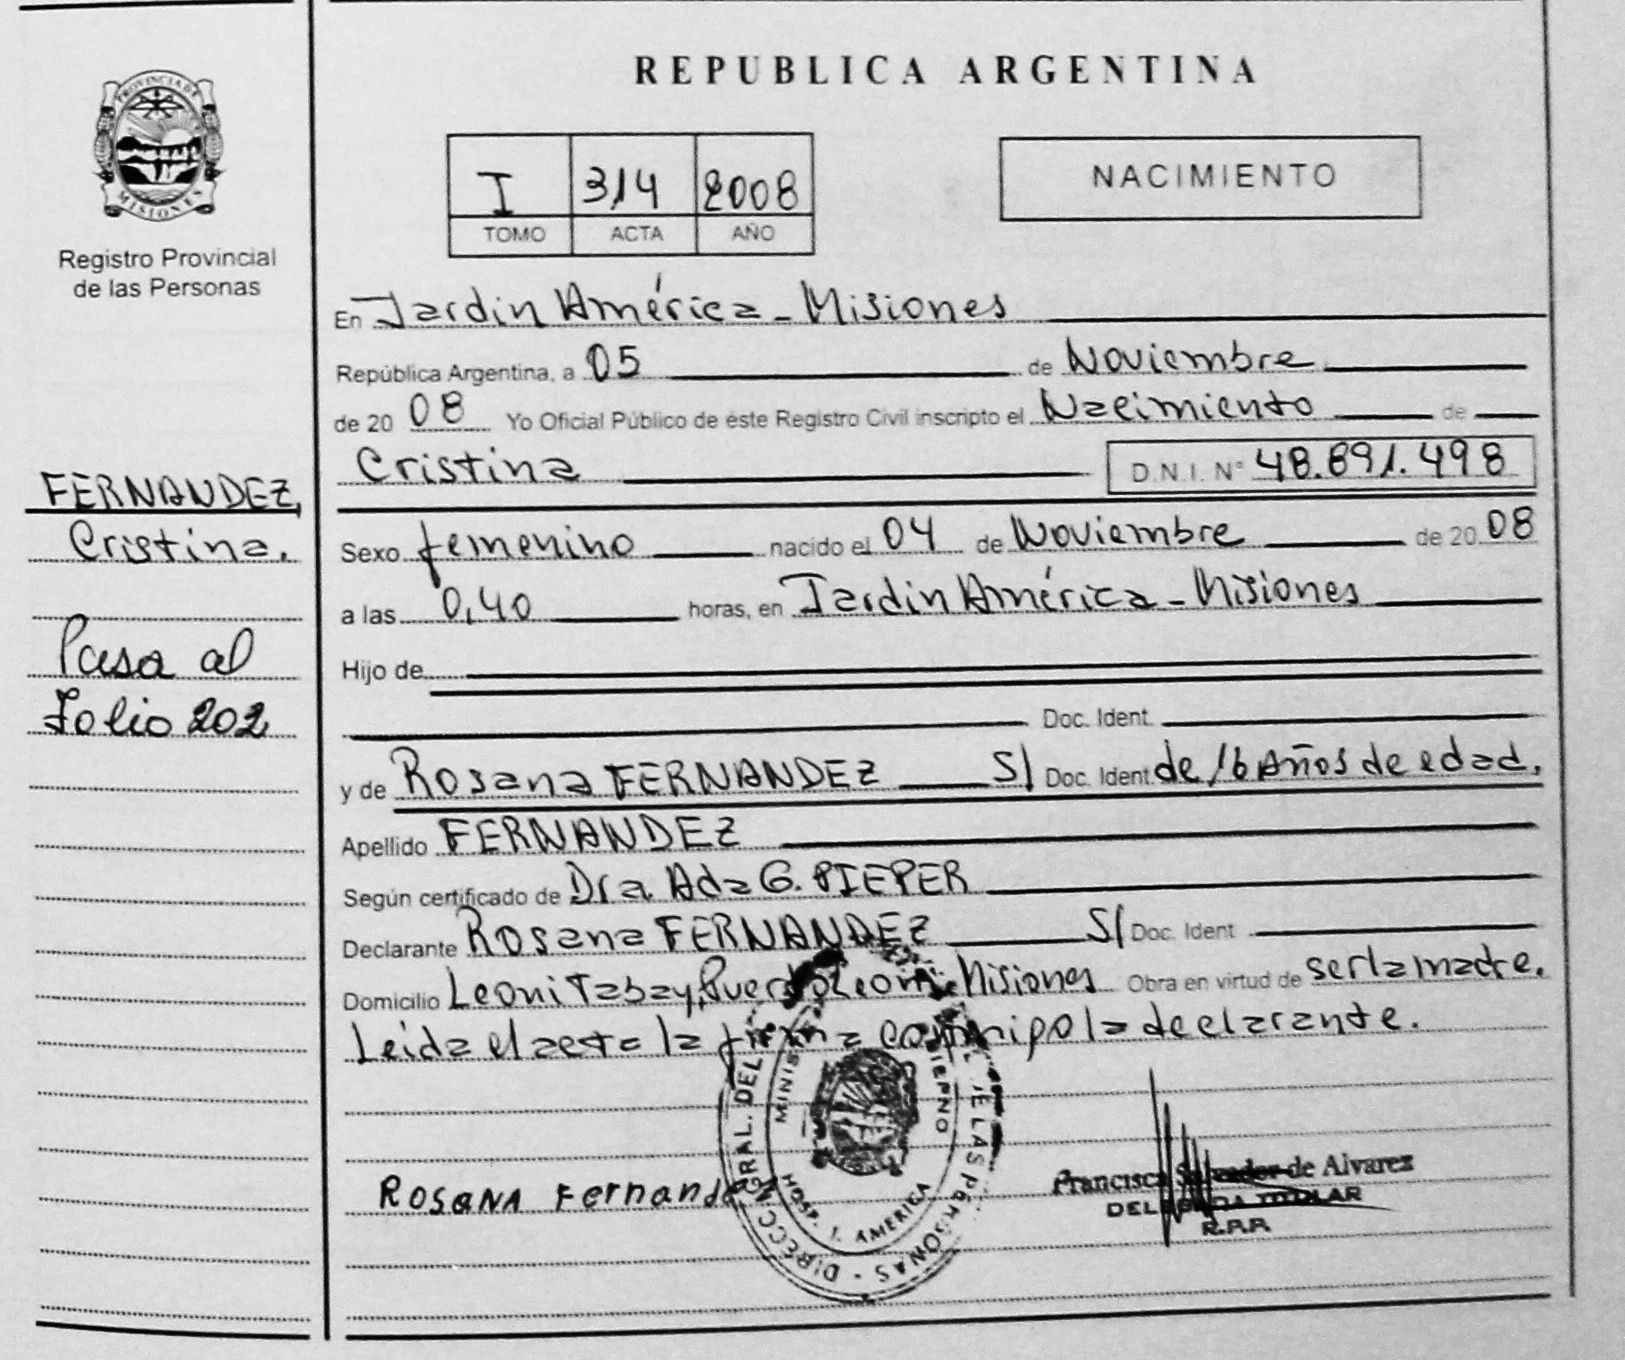 REPUBLICA ARGENTINA
PROVINCIA DE
MISIONES
Registro Provincial
de las Personas
I 314 2008
TOMO ACTA AÑO
NACIMIENTO
En Jardin América - Misiones
República Argentina, a 05 de Noviembre
de 20 08 Yo Oficial Público de éste Registro Civil inscripto el Nacimiento de
Cristina D.N.I. N° 48.891.498
FERNANDEZ,
Cristina.
Pasa al
Folio 202
Sexo femenino nacido el 04 de Noviembre de 20 08
a las 0,40 horas, en Jardin América - Misiones
Hijo de
Doc. Ident.
y de Rosana FERNANDEZ S/ Doc. Ident. de 16 Años de edad.
Apellido FERNANDEZ
Según certificado de Dra. Ada G. PIEPER
Declarante Rosana FERNANDEZ S/ Doc. Ident
Domicilio Leoni Tabay, Puerto Leoni - Misiones Obra en virtud de ser la madre.
Leida el acta la firma conmi po la declarante.
ROSANA Fernande
Francisca Salvador de Alvarez
DELEGADA TITULAR
R.P.P.
DIRECC. GRAL. DEL DE LAS PERSONAS
HOSP. J. AMERICA